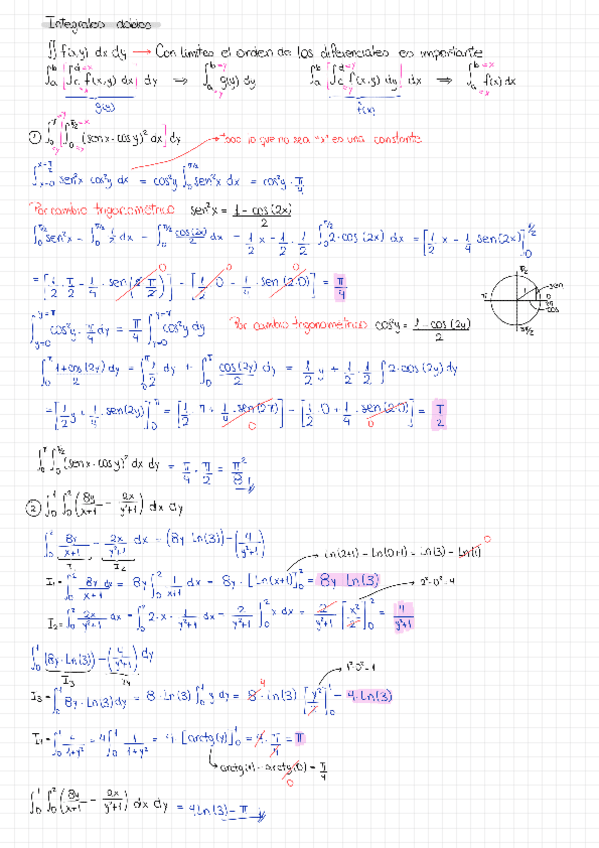 Integrales dobles
∬ f(x,y) dx dy → Con límites el orden de los diferenciales es importante
∫_a^b [∫_c^d f(x,y) dx] dy ⇒ ∫_a^b g(y) dy    ∫_a^b [∫_c^d f(x,y) dy] dx ⇒ ∫_a^b f(x) dx
g(y)    f(x)
① ∫_0^π [∫_0^{π/2} (sen x · cos y)² dx] dy → todo lo que no sea "x" es una constante
∫_{x=0}^{x=π/2} sen²x cos²y dx = cos²y ∫_0^{π/2} sen²x dx = cos²y · π/4
Por cambio trigonométrico sen²x = (1 - cos(2x))/2
∫_0^{π/2} sen²x = ∫_0^{π/2} 1/2 dx - ∫_0^{π/2} cos(2x)/2 dx = 1/2 x - 1/2 · 1/2 ∫_0^{π/2} 2·cos(2x) dx = [1/2 x - 1/4 sen(2x)]_0^{π/2}
= [1/2 · π/2 - 1/4 · sen(2 π/2)] - [1/2 · 0 - 1/4 · sen(2·0)] = π/4
∫_{y=0}^{y=π} cos²y · π/4 dy = π/4 ∫_{y=0}^{y=π} cos²y dy    Por cambio trigonométrico cos²y = (1 - cos(2y))/2
∫_0^π (1 + cos(2y))/2 dy = ∫_0^π 1/2 dy + ∫_0^π cos(2y)/2 dy = 1/2 y + 1/2 · 1/2 ∫ 2·cos(2y) dy
= [1/2 y + 1/4 · sen(2y)]_0^π = [1/2 · π + 1/4 · sen(2π)] - [1/2 · 0 + 1/4 · sen(2·0)] = π/2
∫_0^π ∫_0^{π/2} (sen x · cos y)² dx dy = π/4 · π/2 = π²/8
② ∫_0^1 ∫_0^2 (8y/(x+1) - 2x/(y²+1)) dx dy
∫_0^2 8y/(x+1) - 2x/(y²+1) dx = (8y Ln(3)) - (4/(y²+1))
I₁    I₂
ln(2+1) - ln(0+1) = ln(3) - ln(1)
I₁ = ∫_0^2 8y/(x+1) dx = 8y ∫_0^2 1/(x+1) dx = 8y · [Ln(x+1)]_0^2 = 8y Ln(3)
2² - 0² = 4
I₂ = ∫_0^2 2x/(y²+1) dx = ∫_0^2 2·x · 1/(y²+1) dx = 2/(y²+1) ∫_0^2 x dx = 2/(y²+1) [x²/2]_0^2 = 4/(y²+1)
∫_0^1 (8y · Ln(3)) - (4/(y²+1)) dy
I₃    I₄
1² - 0² = 1
I₃ = ∫ 8y · Ln(3) dy = 8 · ln(3) ∫_0^1 y dy = 8 · ln(3) [y²/2]_0^1 = 4·Ln(3)
I₄ = ∫_0^1 4/(1+y²) = 4 ∫_0^1 1/(1+y²) = 4 · [arctg(y)]_0^1 = 4 · π/4 = π
arctg(1) - arctg(0) = π/4
∫_0^1 ∫_0^2 (8y/(x+1) - 2x/(y²+1)) dx dy = 4Ln(3) - π